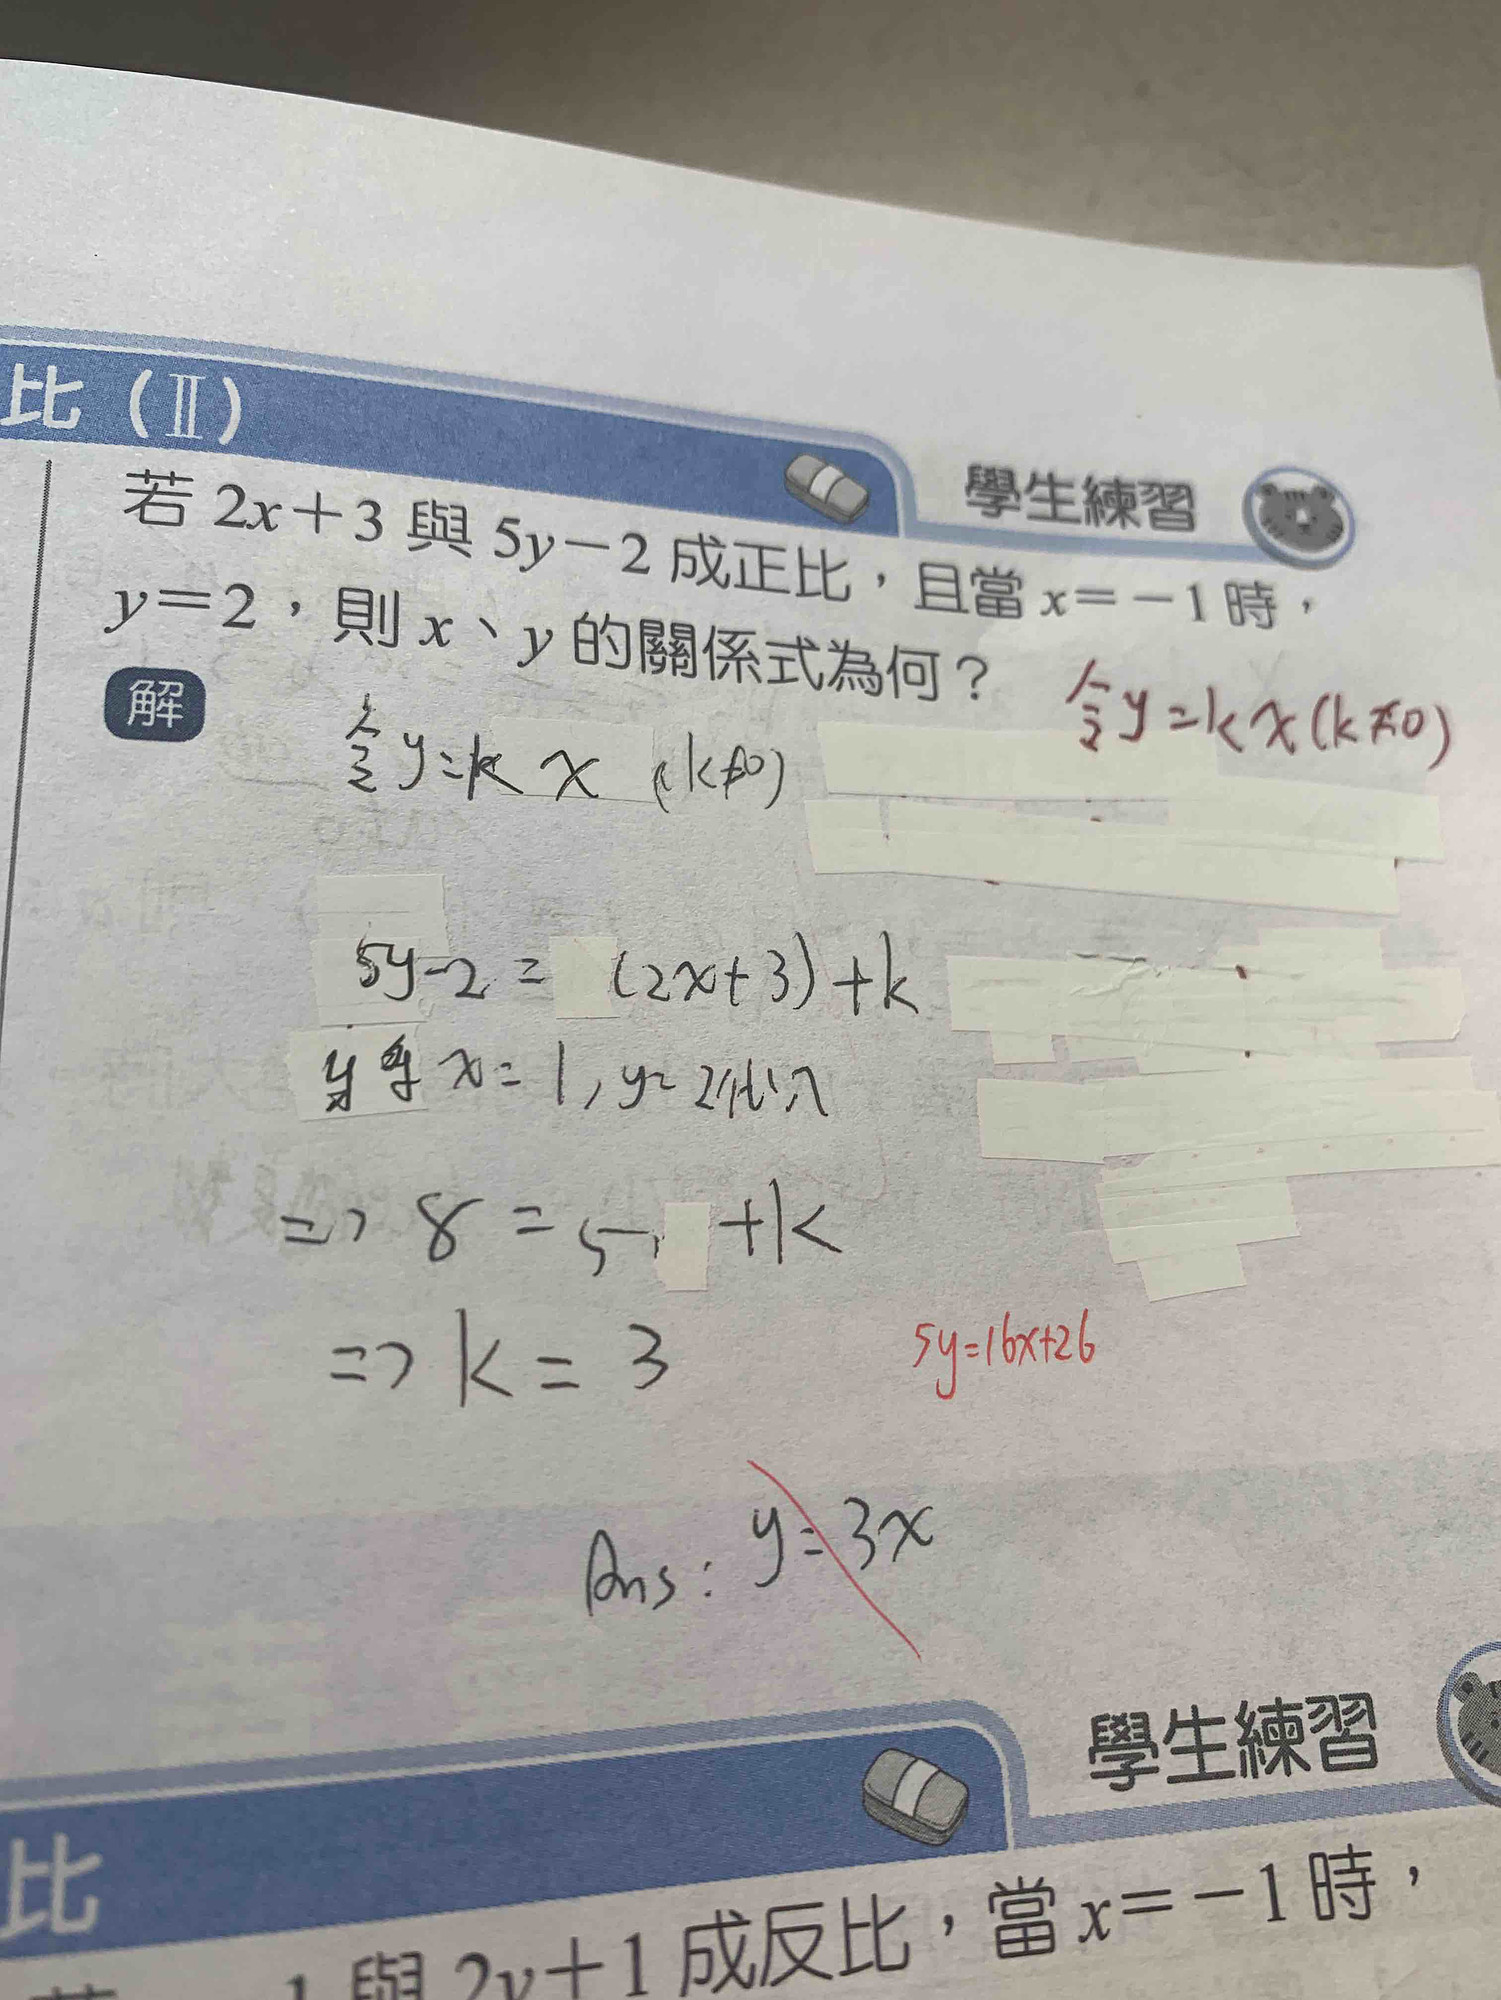 比（Ⅱ）
學生練習
若 2x＋3 與 5y－2 成正比，且當 x＝－1 時，
y＝2，則 x、y 的關係式為何？
解
令 y=kx (k≠0)
令 y=kx(k≠0)
5y-2 = (2x+3)+k
x=1, y=2代入
=> 8 = 5 +k
=> k = 3
5y=16x+26
Ans: y=3x
學生練習
比
1 與 2y＋1 成反比，當 x＝－1 時，